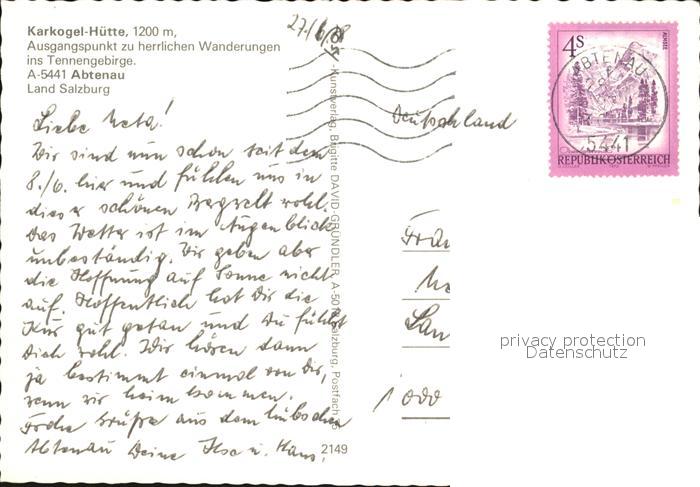 Karkogel-Hütte, 1200 m,
Ausgangspunkt zu herrlichen Wanderungen
ins Tennengebirge.
A-5441 Abtenau
Land Salzburg
Liebe Meta!
Wir sind nun schon seit dem
8./6. hier und fühlen uns in
dieser schönen Bergwelt wohl.
Das Wetter ist im Augenblick
unbeständig. Wir geben aber
die Hoffnung auf Sonne nicht
auf. Hoffentlich hat Dir die
Kur gut getan und Du fühlst
Dich wohl. Wir hören dann
ja bestimmt einmal von Dir,
wenn wir heim kommen.
Frohe Grüße aus dem hübschen
Abtenau Deine Ilse u. Hans.
2149
Kunstverlag Brigitte DAVID-GRÜNDLER, A-50 Salzburg, Postfach
Deutschland
4s
ALMSEE
REPUBLIK ÖSTERREICH
ABTENAU
5441
Frau
Me
San
1000
privacy protection
Datenschutz